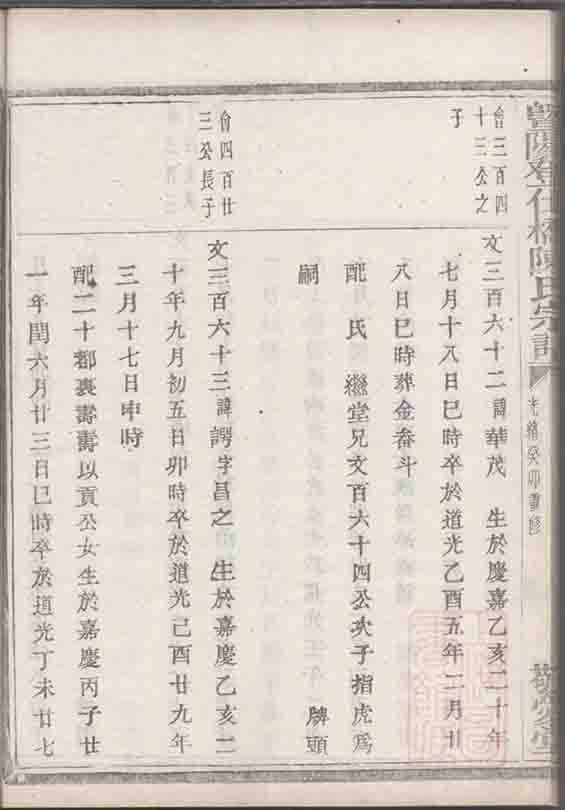 暨陽
橋陳氏宗譜
光緒癸卯重修
會三百四
十三公之
子
文三百六十二諱華茂 生於慶嘉乙亥二十年
七月十八日巳時卒於道光乙酉五年二月廿
八日巳時葬金畚斗
配 氏 繼堂兄文百六十四公次子指虎為
嗣 牌頭
會四百廿
三公長子
文三百六十三諱諤字昌之 生於嘉慶乙亥二
十年九月初五日卯時卒於道光己酉廿九年
三月十七日申時
配二十都裏壽壽以貢公女生於嘉慶丙子廿
一年閏六月廿三日巳時卒於道光丁未廿七